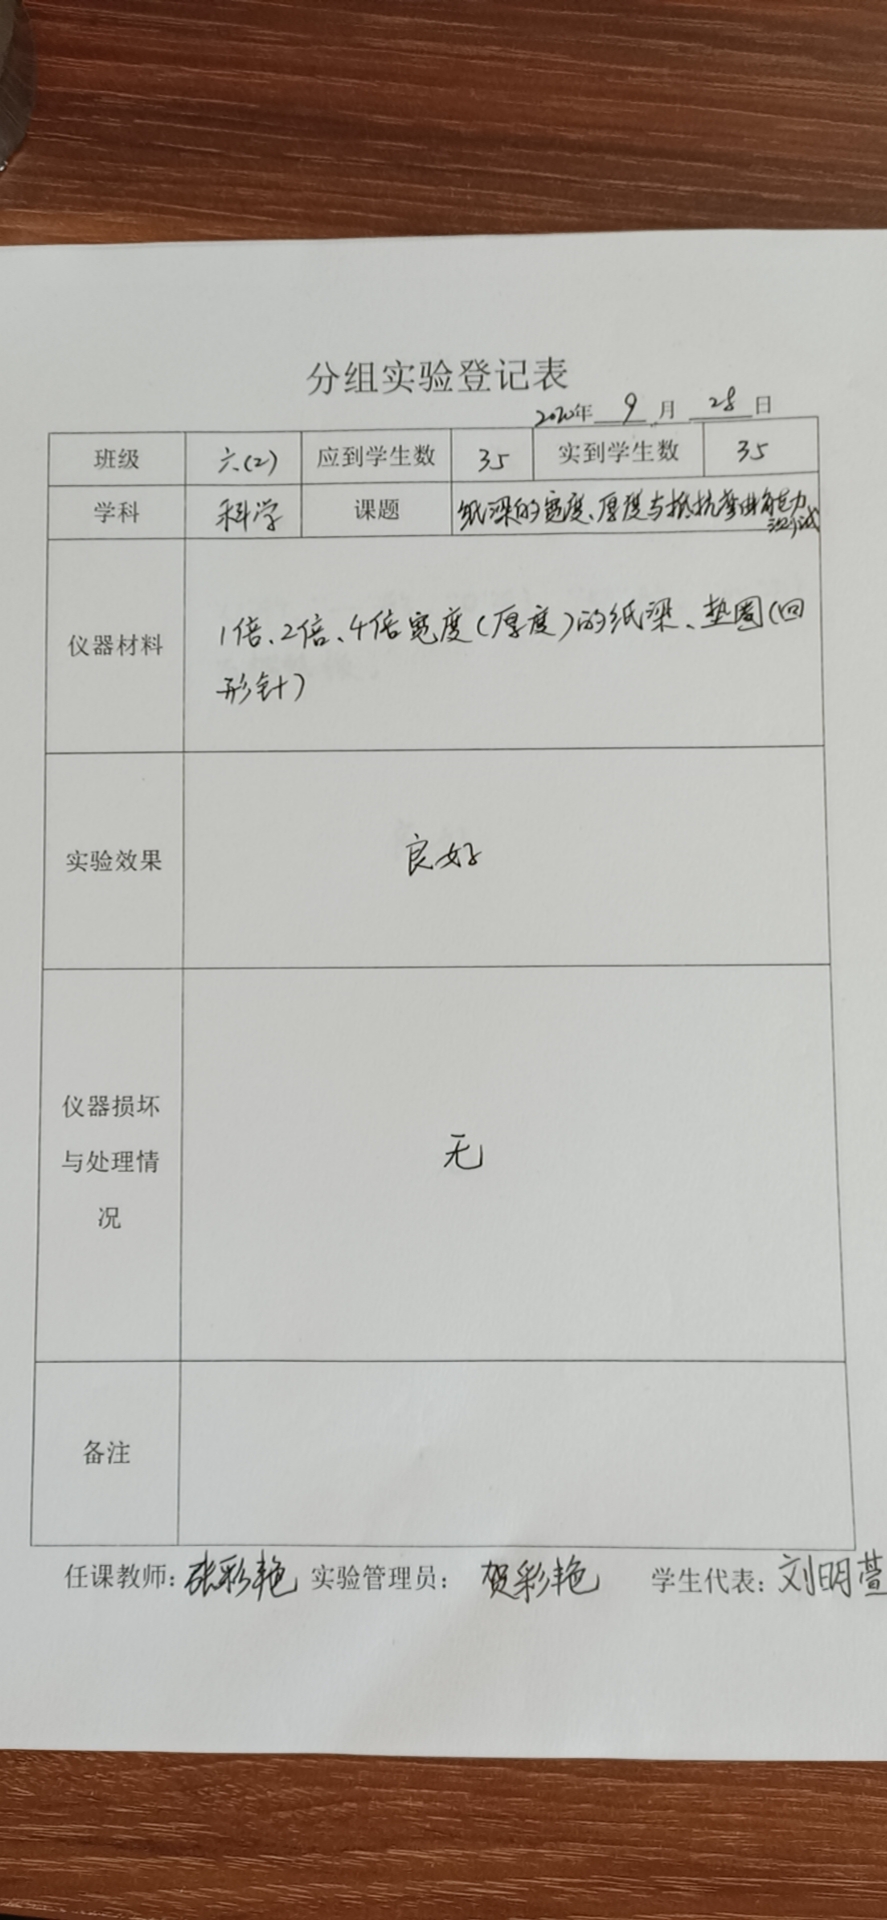 分组实验登记表
2020年 9 月 28 日
班级 六(2) 应到学生数 35 实到学生数 35
学科 科学 课题 纸梁的宽度、厚度与抵抗弯曲能力
测试
仪器材料 1倍、2倍、4倍宽度(厚度)的纸梁、垫圈(回
形针)
实验效果 良好
仪器损坏
与处理情 无
况
备注
任课教师: 张彩艳 实验管理员: 贺彩艳 学生代表: 刘明萱